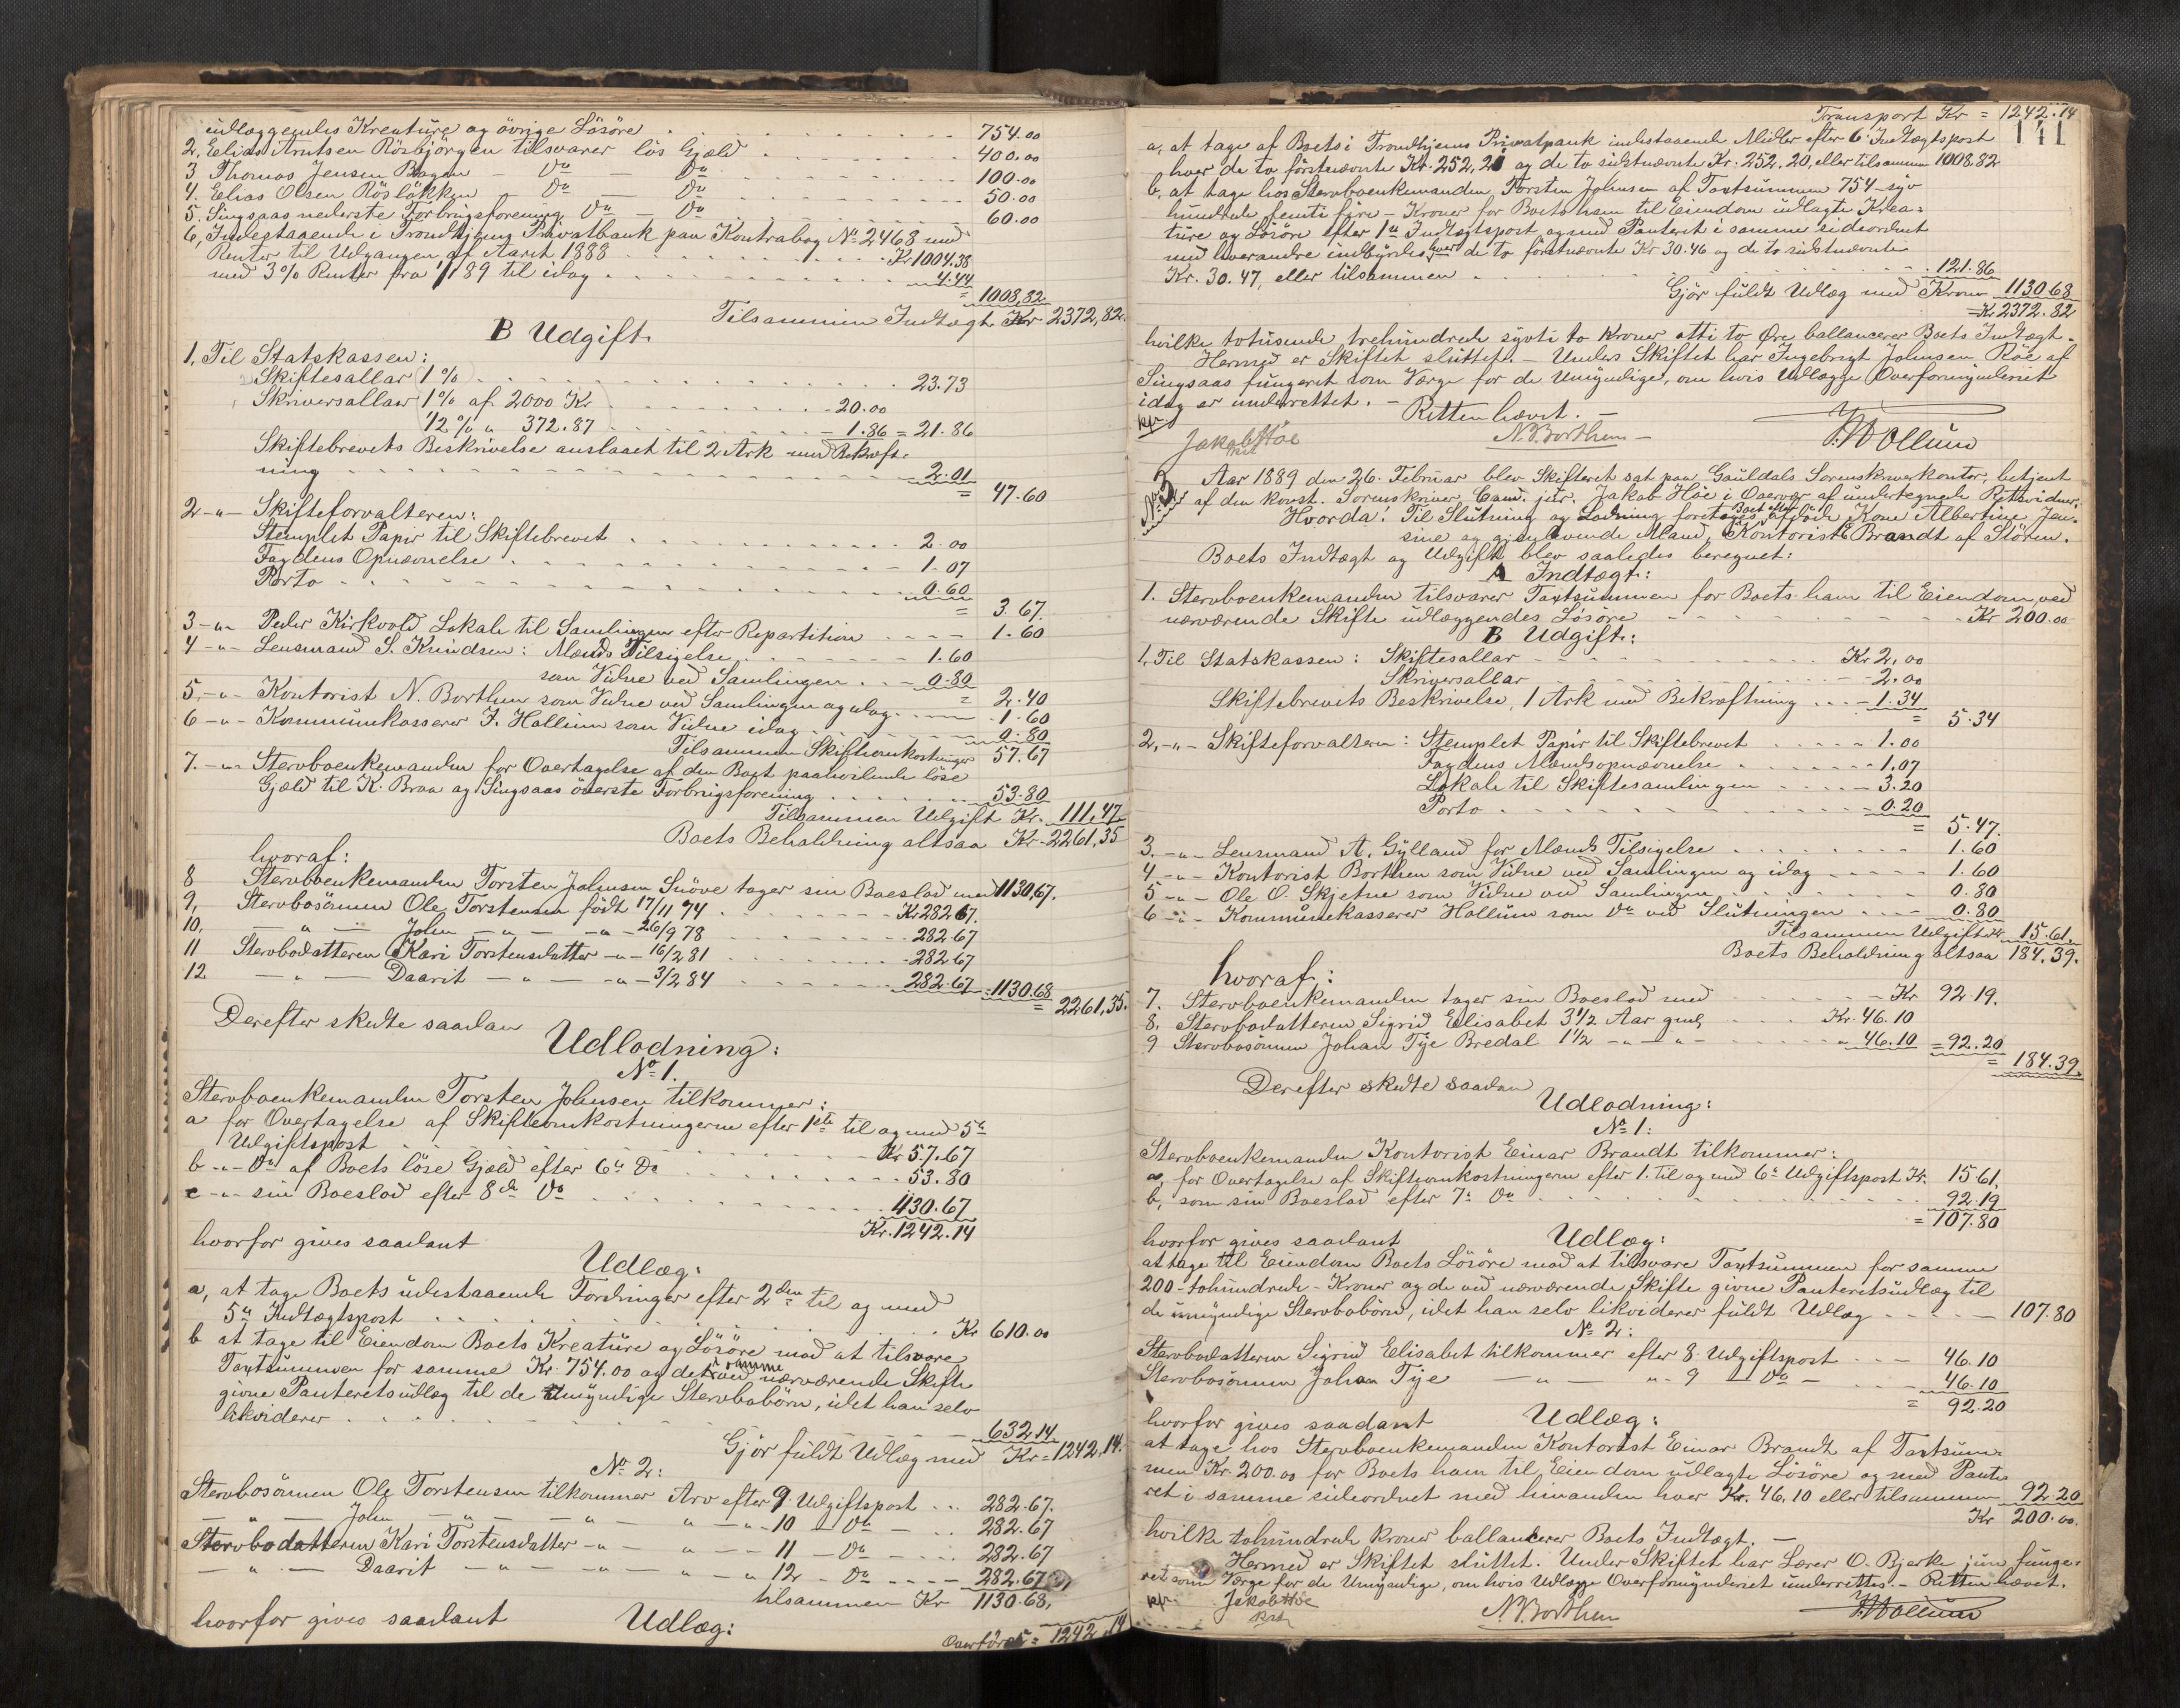 udlæggendes Kreature og övrige Lösöre . . . 754.00
2, Elida Arntsen Rösbjörgen tilsvarer lös Gjæld . . . 400.00
3 Thomas Jensen Bagen — Do — Do . . . 100.00
4. Elias Olsen Röslökken — Do — Do . . . 50.00
5. Singsaas nederste Forbrugsforening Do — Do . . . 60.00
6, Indestaaende i Trondhjems Privatbank paa Kontrabog No 2468 med
Renter til Udgangen af Aaret 1888 . . . Kr 1004.38
med 3% Renter fra 1/1 89 til idag . . . 4.44
= 1008,82
Tilsammen Indtægt Kr 2372,82.
B Udgift.
1, Til Statskassen:
Skiftesallar (1%) . . . 23.73
Skriversallar (1% af 2000 Kr . . . 20.00
1/2 % " 372.87 . . . 1.86 = 21.86
Skiftebrevets Beskrivelse anslaaet til 2 Ark med Bekræft-
ning . . . 2.01
= 47.60
2 -"- Skifteforvalteren:
Stemplet Papir til Skiftebrevet . . . 2.00
Fogdens Opnævnelse . . . 1.07
Porto . . . 0.60
= 3.67.
3 -"- Peder Kirkvold Lokale til Samlingen efter Repartition . . . 1.60
4 -"- Lensmand S. Knudsen: Mænds Tilsigelse . . . 1.60
som Vidne ved Samlingen . . . 0.80
= 2.40
5, -"- Kontorist N. Borthen som Vidne ved Samlingen og idag . . . 1.60
6 -"- Kommunekasserer J. Hollum som Vidne idag . . . 0.80
Tilsammen Skifteomkostninger 57.67
7. -"- Stervboenkemanden for Overtagelse af den Boet paahvilende löse
Gjæld til K. Braa og Singsaas överste Forbrugsforening . . . 53.80
Tilsammen Udgift Kr. 111,47.
Boets Beholdning altsaa Kr 2261,35
hvoraf:
8 Stervboenkemanden Torsten Johnsen Snöve tager sin Boeslod med 1130,67.
9, Stervbosönnen Ole Torstensen födt 17/11 74 . . . Kr 282 67.
10, — " — John — " — -"- 26/9 78 . . . 282.67
11 Stervbodatteren Kari Torstensdatter -"- 16/2 81 . . . 282 67
12 — " — Daarit — " — -"- 3/2 84 . . . 282.67 = 1130.68
= 2261,35.
Derefter skedte saadan
Udlodning:
No 1.
Stervboenkemanden Torsten Johnsen tilkommer:
a for Overtagelse af Skifteomkostningerne efter 1ste til og med 5te
Udgiftspost . . . Kr 57.67
b -"- Do af Boets löse Gjæld efter 6te Do . . . 53.80
c -"- sin Boeslod efter 8de Do . . . 1130.67
Kr. 1242.14
hvorfor gives saadant
Udlæg:
a, at tage Boets udestaaende Fordringer efter 2den til og med
5te Indtægtspost . . . Kr 610.00
b at tage til Eiendom Boets Kreature og Lösöre mod at tilsvare
Taxtsummen for samme Kr. 754.00 og det i samme ved nærværende Skifte
givne Panteretsudlæg til de Umyndige Stervbobörn, idet han selv
likviderer . . . 632.14
Gjör fuldt Udlæg med Kr = 1242,14.
No 2:
Stervbosönnen Ole Torstensen tilkommer Arv efter 9 Udgiftspost . . . 282.67.
— " — John — " — — " — " — " - 10 — Do — . . . 282.67
Stervbodatteren Kari Torstensdatter -"- " — — 11 — Do . . . 282.67
— " — Daarit — " — -"- — " — " 12 — Do . . . 282.67
tilsammen Kr 1130.68,
hvorfor gives saadant Udlæg:
Overföres = 1242,14
Transport Kr = 1242.14
141
a, at tage af Boets i Trondhjems Privatpank indestaaende Midler efter 6. Indtægtspost
hver de to förstnævnte Kr. 252,21 og de to sidstnævnte Kr. 252.20, eller tilsammen 1008.82
b, at tage hos Stervboenkemanden Torsten Johnsen af Taxtsummen 754 - syv
hundrede femti fire - Kroner for Boets ham til Eiendom udlagte Krea-
ture og Lösöre efter 1te Indtægtspost og med Panteret i samme sideordnet
med hverandre indbyrdes, hver de to förstnævnte Kr 30.46 og de to sidstnævnte
Kr. 30.47, eller tilsammen . . . 121.86
Gjör fuldt Udlæg med Kroner 1130 68
= Kr 2372.82
hvilke totusende trehundrede sytti to Kroner otti to Øre ballancerer Boets Indtægt.
Hermed er Skiftet sluttet. — Under Skiftet har Ingebrigt Johnsen Röe af
Singsaas fungeret som Værge for de Umyndige, om hvis Udlægge Overformynderiet
idag er underrettet. — Retten hævet. —
Jakob Höe
N. Borthen
J. Hollum
No 3
Aar 1889 den 26. Februar blev Skifteret sat paa Gauldals Sorenskriverkontor, betjent
af den konst. Sorenskriver, Cand. jur. Jakob Höe i Overvær af undertegnede Retsvidner.
Hvorda! Til Slutning og Lodning foretoges Boet efter afdöde Kone Albertine Jen-
sine og gjenlevende Mand, Kontorist E Brandt af Stören.
Boets Indtægt og Udgift blev saaledes beregnet:
A Indtægt:
1. Stervboenkemanden tilsvarer Taxtsummen for Boets ham til Eiendom ved
nærværende Skifte udlæggendes Lösöre . . . Kr 200.00
B Udgift:
1, Til Statskassen: Skiftesallar . . . Kr 2,00
Skriversallar . . . 2.00
Skiftebrevets Beskrivelse, 1 Ark med Bekræftning . . . 1.34
= 5.34
2, -"- Skifteforvalteren: Stemplet Papir til Skiftebrevet . . . 1.00
Fogdens Mændsopnævnelse . . . 1,07
Lokale til Skiftesamlingen . . . 3.20
Porto . . . 0.20
= 5.47.
3, -"- Lensmand A. Gylland for Mænds Tilsigelse . . . 1.60
4 -"- Kontorist Borthen som Vidne ved Samlingen og idag . . . 1.60
5 -"- Ole O. Skjetne som Vidne ved Samlingen . . . 0.80
6 -"- Kommunekasserer Hollum som Do ved Slutningen . . . 0.80
Tilsammen Udgift Kr 15.61.
Boets Beholdning altsaa 184.39.
hvoraf:
7. Stervboenkemanden tager sin Boeslod med . . . Kr 92.19.
8. Stervbodatteren Sigrid Elisabet 3 1/2 Aar gml, . . . Kr. 46.10
9 Stervbosönnen Johan Tije Bredal 1 1/2 -"- -"- . . . 46.10 = 92.20
= 184.39.
Derefter skedte saadan
Udlodning:
No 1:
Stervboenkemanden Kontorist Einar Brandt tilkommer:
a, for Overtagelse af Skifteomkostningerne efter 1. til og med 6te Udgiftspost Kr. 15.61,
b, som sin Boeslod efter 7de Do . . . 92.19
= 107.80
hvorfor gives saadant Udlæg:
at tage til Eiendom Boets Lösöre mod at tilsvare Taxtsummen for samme
200 - tohundrede - Kroner og de ved nærværende Skifte givne Panteretsudlæg til
de umyndige Stervbobörn, idet han selv likviderer fuldt Udlæg . . . 107.80
No 2:
Stervbodatteren Sigrid Elisabet tilkommer efter 8. Udgiftspost . . . 46.10
Stervbosönnen Johan Tije — " — " - 9 — Do — . . . 46.10
= 92.20
hvorfor gives saadant Udlæg:
at tage hos Stervboenkemanden Kontorist Einar Brandt af Taxtsum-
men Kr. 200.00 for Boets ham til Eiendom udlagte Lösöre og med Pante-
ret i samme sideordnet med hinanden hver Kr. 46.10 eller tilsammen 92.20
Kr 200.00.
hvilke tohundrede kroner ballancerer Boets Indtægt. —
Hermed er Skiftet sluttet. Under Skiftet har Lærer O. Bjerke jun funge-
ret som Værge for de Umyndige, om hvis Udlægge Overformynderiet underrettes. — Retten hævet.
Jakob Höe
N. Borthen
J. Hollum